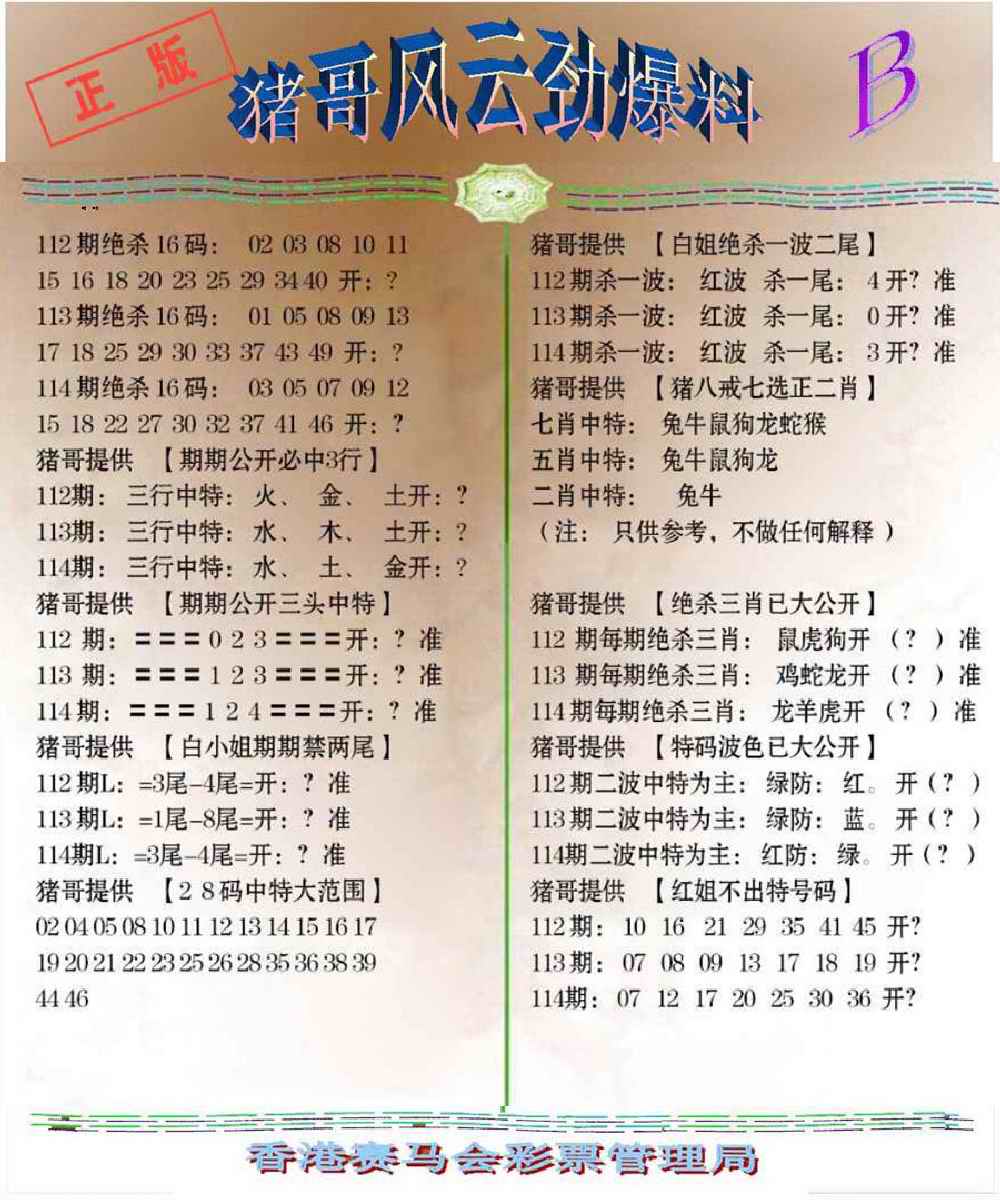 正版
猪哥风云劲爆料
B
112期绝杀16码： 02 03 08 10 11
15 16 18 20 23 25 29 34 40 开：?
113期绝杀16码： 01 05 08 09 13
17 18 25 29 30 33 37 43 49 开：?
114期绝杀16码： 03 05 07 09 12
15 18 22 27 30 32 37 41 46 开：?
猪哥提供 【期期公开必中3行】
112期：三行中特：火、 金、 土开：?
113期：三行中特：水、 木、 土开：?
114期：三行中特：水、 土、 金开：?
猪哥提供 【期期公开三头中特】
112 期：〓〓〓0 2 3〓〓〓开：? 准
113 期：〓〓〓1 2 3〓〓〓开：? 准
114期：〓〓〓1 2 4〓〓〓开：? 准
猪哥提供 【白小姐期期禁两尾】
112期L：=3尾-4尾=开：? 准
113期L：=1尾-8尾=开：? 准
114期L：=3尾-4尾=开：? 准
猪哥提供 【2 8码中特大范围】
02 04 05 08 10 11 12 13 14 15 16 17
19 20 21 22 23 25 26 28 35 36 38 39
44 46
猪哥提供 【白姐绝杀一波二尾】
112期杀一波： 红波 杀一尾： 4开? 准
113期杀一波： 红波 杀一尾： 0开? 准
114期杀一波： 红波 杀一尾： 3开? 准
猪哥提供 【猪八戒七选正二肖】
七肖中特： 兔牛鼠狗龙蛇猴
五肖中特： 兔牛鼠狗龙
二肖中特： 兔牛
（注： 只供参考，不做任何解释 ）
猪哥提供 【绝杀三肖已大公开】
112 期每期绝杀三肖： 鼠虎狗开 （? ）准
113 期每期绝杀三肖： 鸡蛇龙开 （? ）准
114期每期绝杀三肖： 龙羊虎开 （? ）准
猪哥提供 【特码波色已大公开】
112期二波中特为主：绿防：红。开（? ）
113期二波中特为主：绿防：蓝。开（? ）
114期二波中特为主：红防：绿。开（? ）
猪哥提供 【红姐不出特号码】
112期： 10 16 21 29 35 41 45 开?
113期： 07 08 09 13 17 18 19 开?
114期： 07 12 17 20 25 30 36 开?
香港赛马会彩票管理局